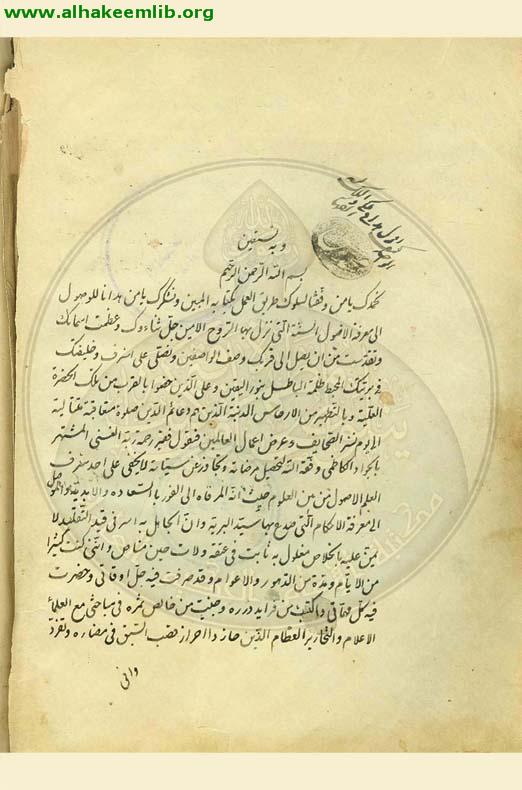 www.alhakeemlib.org
وبه نستعين
بسم الله الرحمن الرحيم
نحمدك يا من وفقنا لسلوك طريق العمل بكتابه المبين ونشكرك يا من هدانا للوصول
الى معرفة الاصول التى نزل بها الروح الامين جل ثناءوك وعظمت اسماءك
وتقدست من ان يصل الى قربك وصف الواصفين ونصلى على اشرف وخليفتك
فى بريتك المحيط ظلمة الباطل بنور اليقين وعلى الذين حفوا بالقرب من تلك الحضرة
العلية وبالتطهير من الارجاس الدنية الذين هم دعائم الدين صلوة متعاقبة متتالية
الى يوم نشر الصحايف وعرض اعمال العالمين فيقول فقير رحمة ربه الغنى المشتهر
بالجواد الكاظمى وفقه الله لتحصيل مرضاته وتجاوز عن سيئاته لا يخفى على احد شرف
العلم الاصول من بين العلوم حيث انه المرقاه الى الفوز بالسعادة والابدية
الى معرفة الاحكام التى صدع بها سيد البرية وان الجاهل به اسر فى قيد التقليد لا
يمن عليه بالخلاص مغلول به ثابت فى عنقه ولات حين مناص وانى كنت كثيرا
من الايام ومدة من الدهور والاعوام وقد صرفت فيه جل اوقاتى وحضرت
فيه كل مهماتى واكتسبت من فرايد درره وجنيت من خالص ثمره فى مباحثى مع العلماء
الاعلام والنحارير العظام الذين حازوا احراز قصب السبق فى مضماره وتفرد
وانى